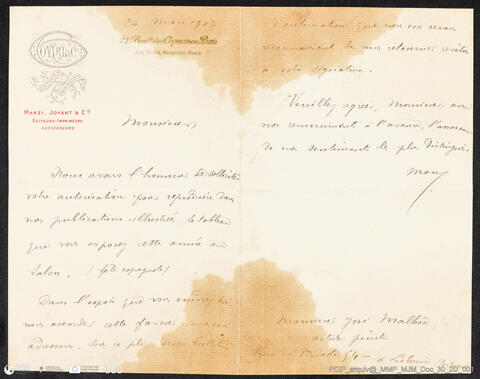 MANZI, JOYANT & Cie
EDITEURS-IMPRIMEURS
SUCCESSEURS
24 Mai
Monsieur,
Nous avons l'honneur de solliciter
votre autorisation pour reproduire dans
nos publications illustrées, le tableau
que vous exposez cette année au
Salon. (fête espagnole)
Dans l'espoir que vous voudrez bien
nous accorder cette faveur
adressons sur ce pli
d'autorisation que nous vous serons
reconnaissant de nous retourner revêtu
de votre signature.
Veuillez agréer, Monsieur, avec
nos remerciements à l'avance, l'assurance
de nos sentiments les plus distingués.
Manzi
Monsieur José Malhôa
artiste peintre
54 à Lisbonne
PCIP_arquiv@_MMP_MJM_Doc_30_20_001